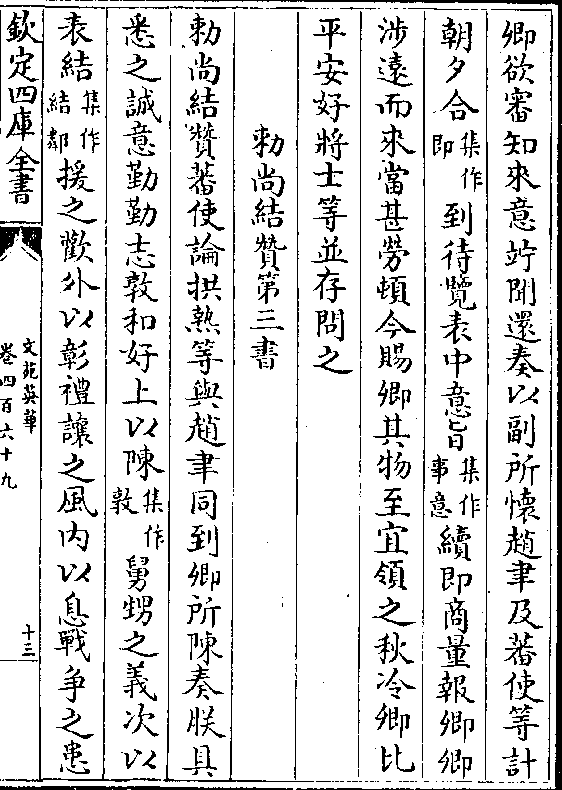 卿欲審知來意竚聞還奏以副所懷趙聿及蕃使等計
朝夕合集作即到待覽表中意旨集作事意續即商量報卿卿
涉遠而來當甚勞頓今賜卿某物至宜領之秋冷卿比
平安好將士等並存問之
勅尚結贊第三書
勅尚結贊蕃使論拱熱等與趙聿同到卿所陳奏朕具
悉之誠意勤勤志敦和好上以陳集作敦舅甥之義次以
表結集作結鄰援之歡外以彰禮讓之風内以息戰爭之患
欽定四庫全書
文苑英華
卷四百六十九
十三